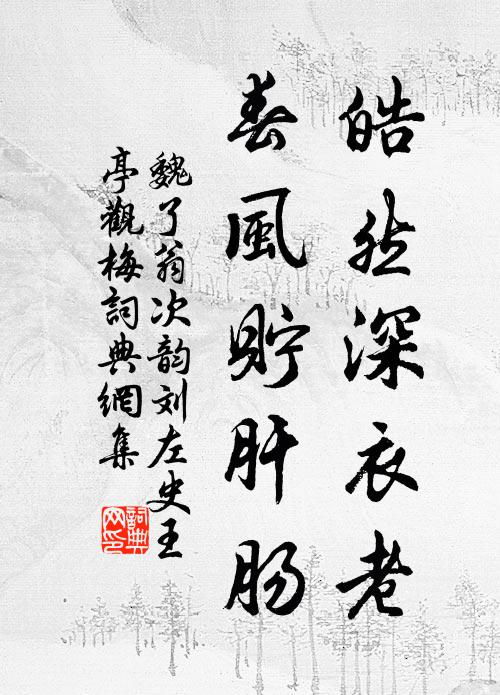 皓然深衣老
春風貯肝肠
魏了翁次韵刘左史王
亭觀梅詞典網集
詞典网印